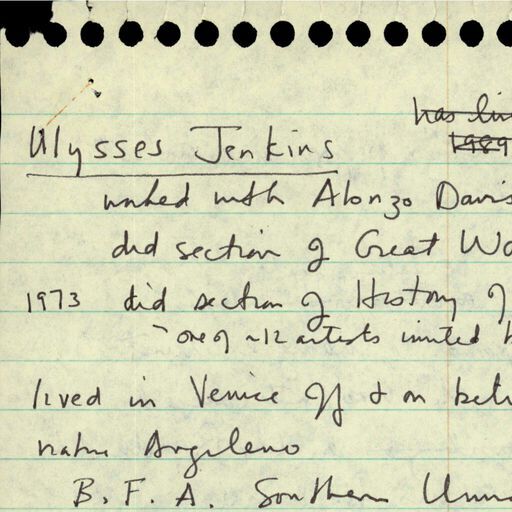 has liv
1989
Ulysses Jenkins
worked with Alonzo Davis
did section of Great Wa
1973 did section of History of
one of ~12 artists invited b
lived in Venice off & on betw
native Angeleno
B.F.A. Southern Univ